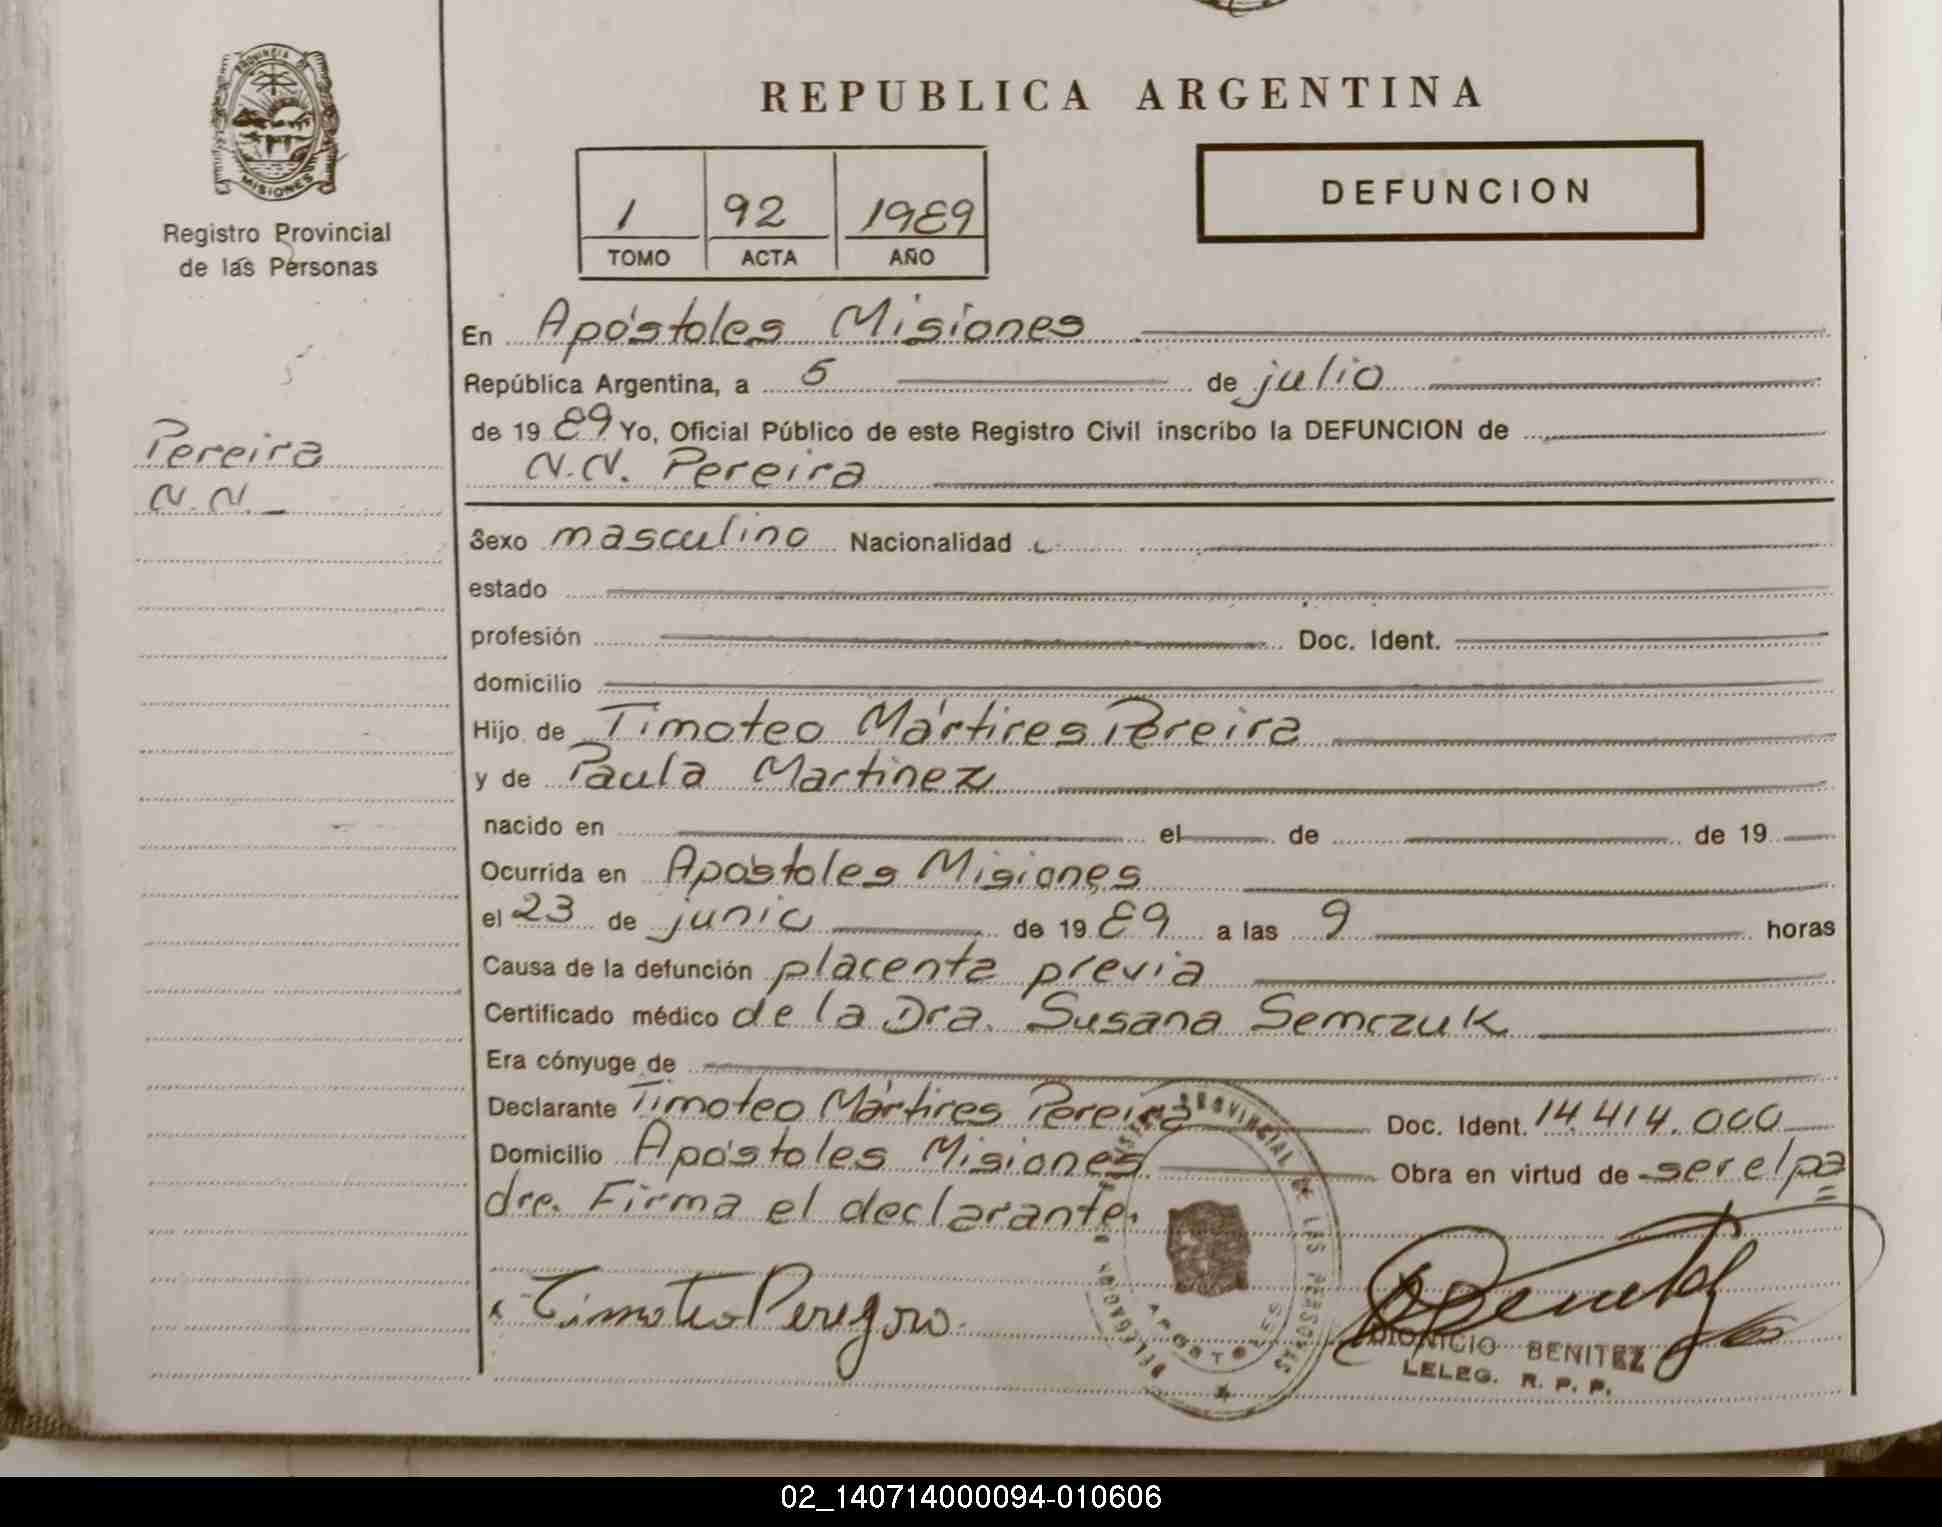 PROVINCIA DE
MISIONES
Registro Provincial
de las Personas
Pereira
N.N.
REPUBLICA ARGENTINA
1 92 1989
TOMO ACTA AÑO
DEFUNCION
En Apóstoles Misiones
República Argentina, a 5 de julio
de 19 89 Yo, Oficial Público de este Registro Civil inscribo la DEFUNCION de
N.N. Pereira
Sexo masculino Nacionalidad
estado
profesión Doc. Ident.
domicilio
Hijo de Timoteo Mártires Pereira
y de Paula Martinez
nacido en el de de 19
Ocurrida en Apóstoles Misiones
el 23 de junio de 19 89 a las 9 horas
Causa de la defunción placenta previa
Certificado médico de la Dra. Susana Semczuk
Era cónyuge de
Declarante Timoteo Mártires Pereira Doc. Ident. 14.414.000
Domicilio Apóstoles Misiones Obra en virtud de ser el pa
dre. Firma el declarante.
Timoteo
DIONICIO BENITEZ
DELEGACION REGISTRO PROVINCIAL DE LAS PERSONAS
APOSTOLES
LELEG. R. P. P.
02_140714000094-010606